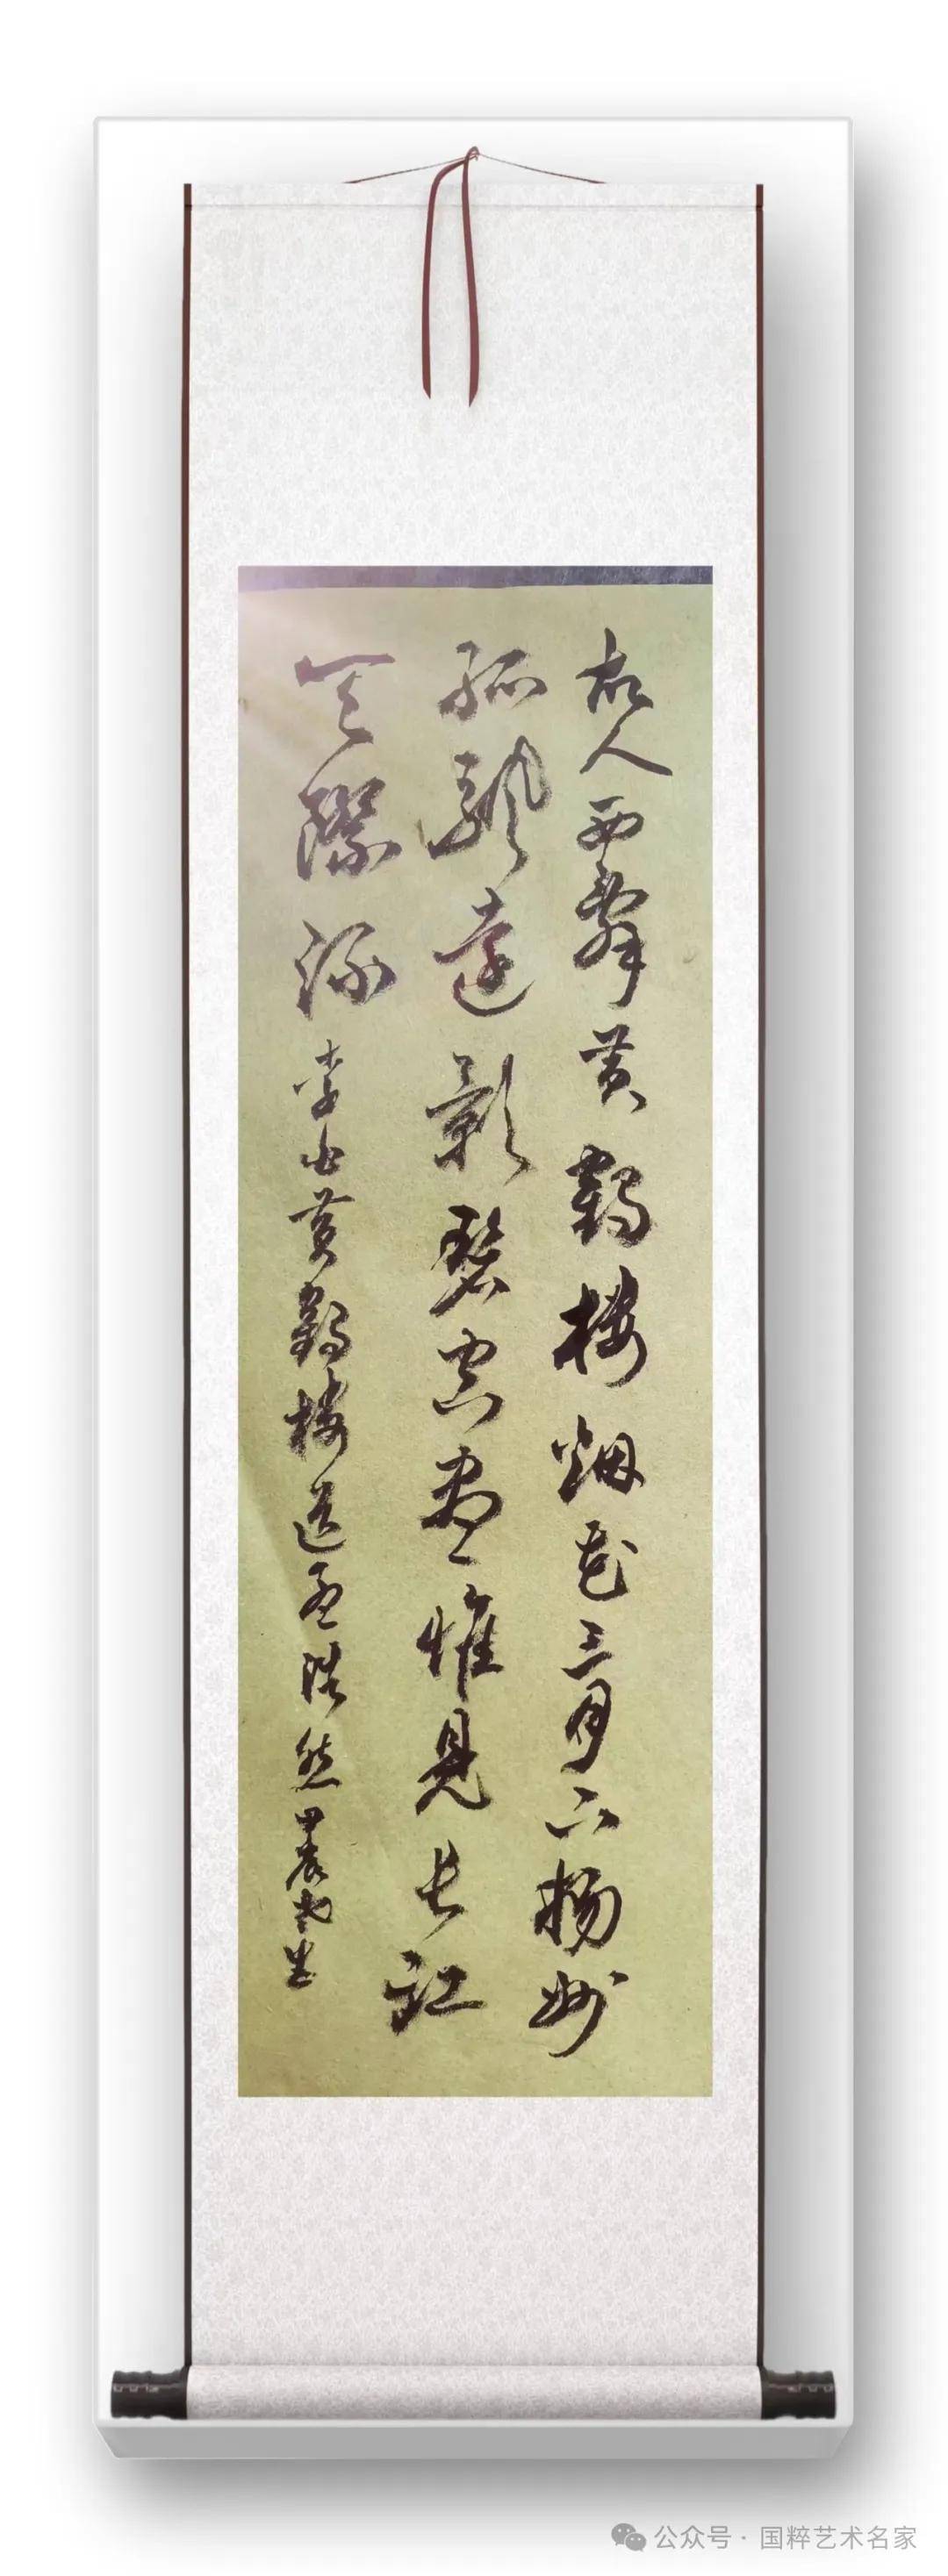 故人西辞黄鹤楼烟花三月下扬州
孤帆远影碧空尽惟见长江
天际流李白黄鹤楼送孟浩然
公众号·国粹艺术名家